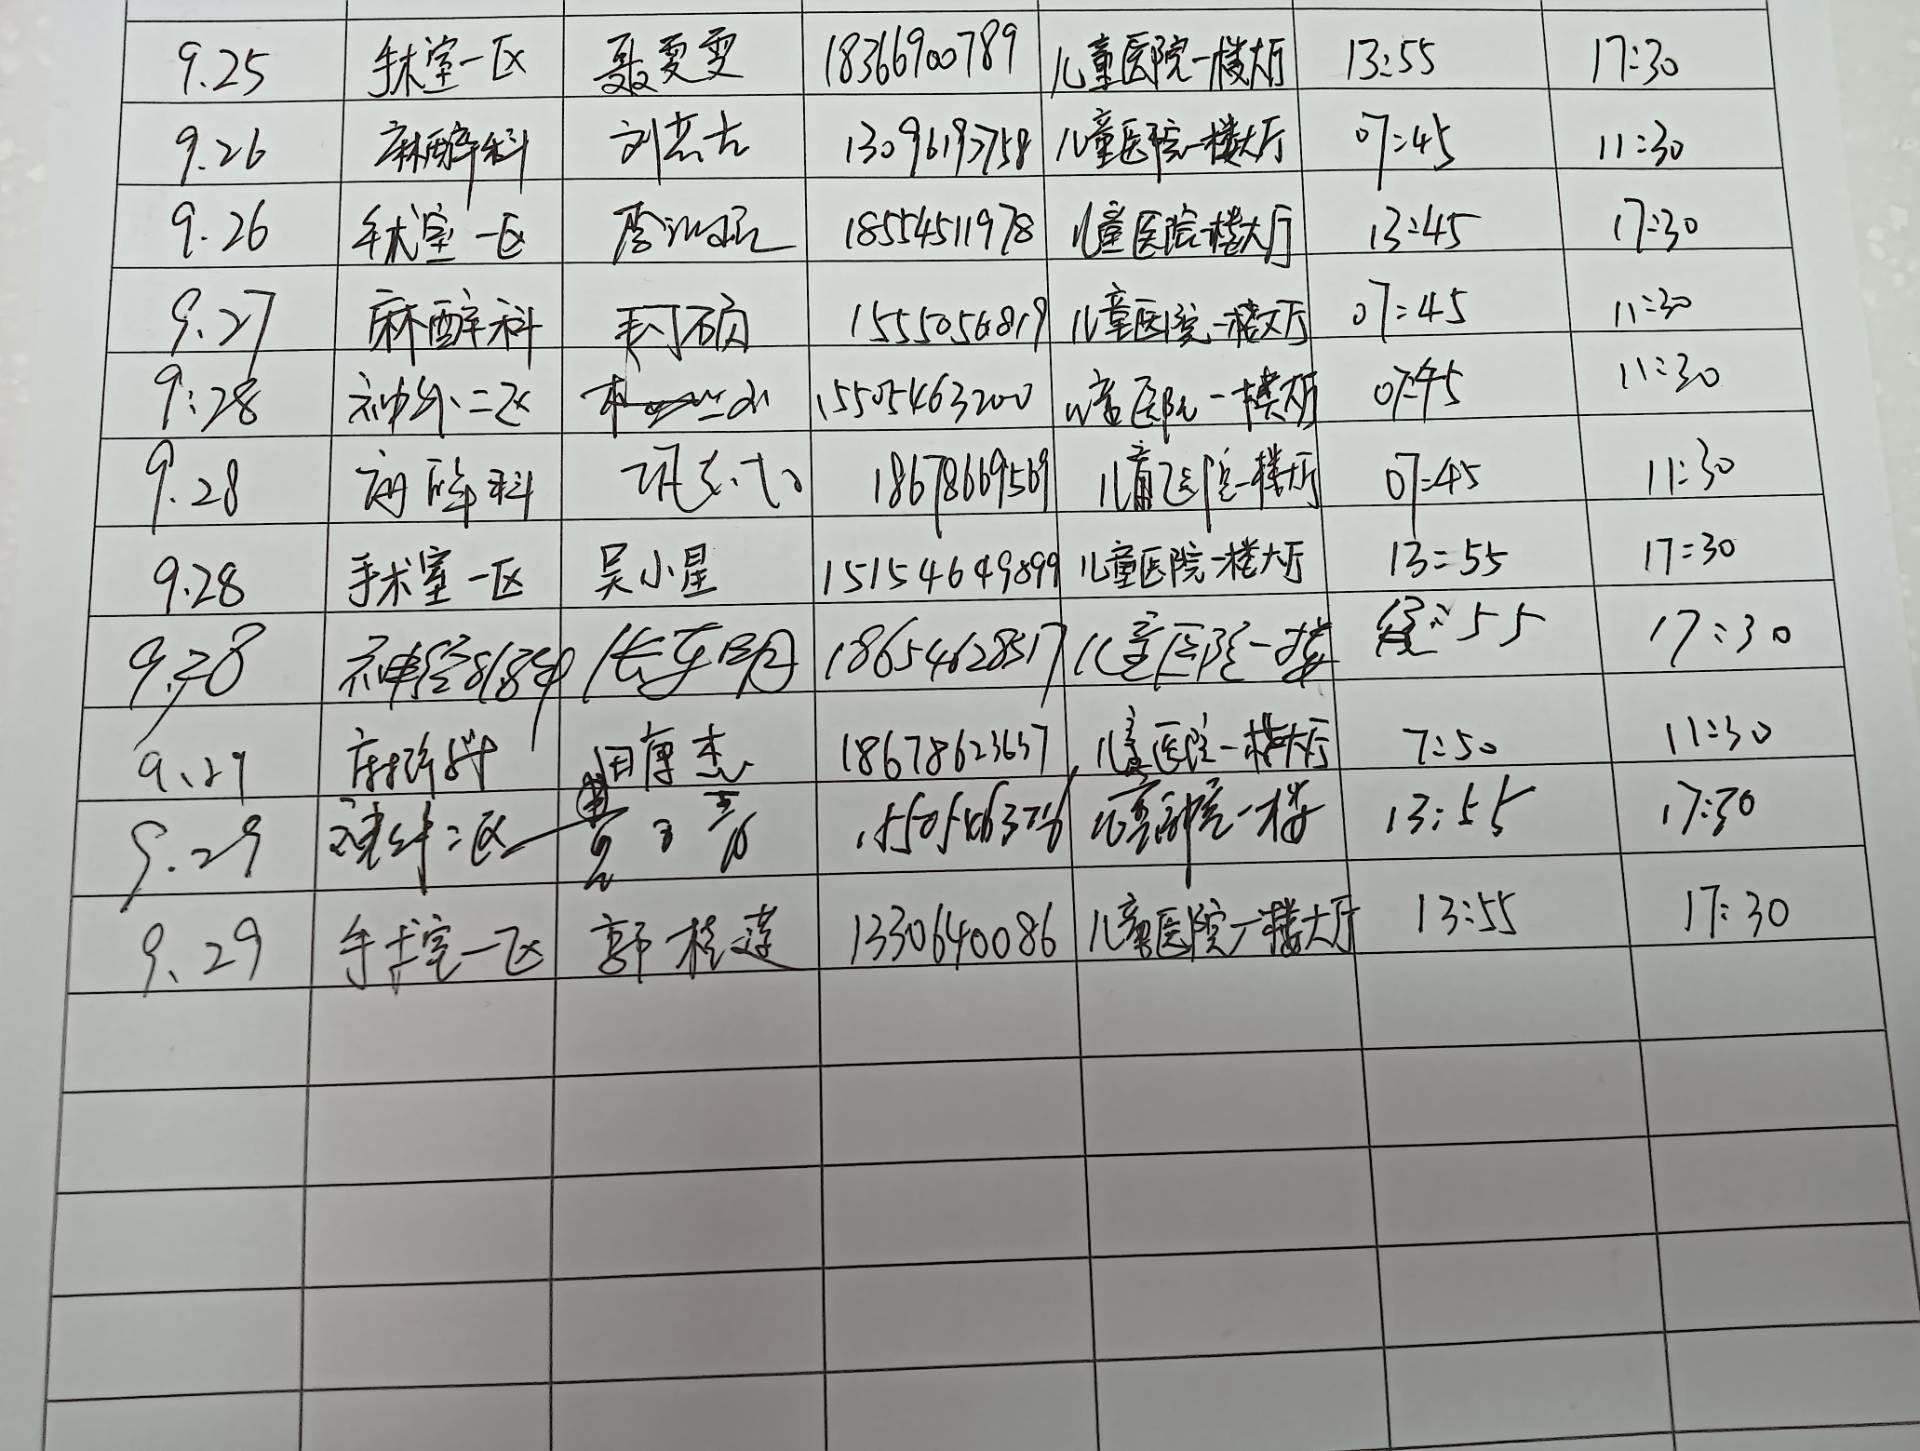 9.25 手术室一区 聂雯雯 18366900789 儿童医院一楼大厅 13:55 17:30
9.26 麻醉科 刘 13096193758 儿童医院一楼大厅 07:45 11:30
9.26 手术室一区 18554511978 儿童医院一楼大厅 13:45 17:30
9.27 麻醉科 1555056819 儿童医院一楼大厅 07:45 11:30
9.28 神外二区 15505463200 儿童医院一楼大厅 07:45 11:30
9.28 麻醉科 18678669569 儿童医院一楼大厅 07:45 11:30
9.28 手术室一区 吴小星 15154649899 儿童医院一楼大厅 13:55 17:30
9.28 神经外科 张东明 18654628517 儿童医院一楼 :55 17:30
9.29 麻醉科 田厚杰 18678623657 儿童医院一楼大厅 7:50 11:30
9.29 二区 儿童医院一楼 13:55 17:30
9.29 手术室一区 郭桂莲 1330640086 儿童医院一楼大厅 13:55 17:30